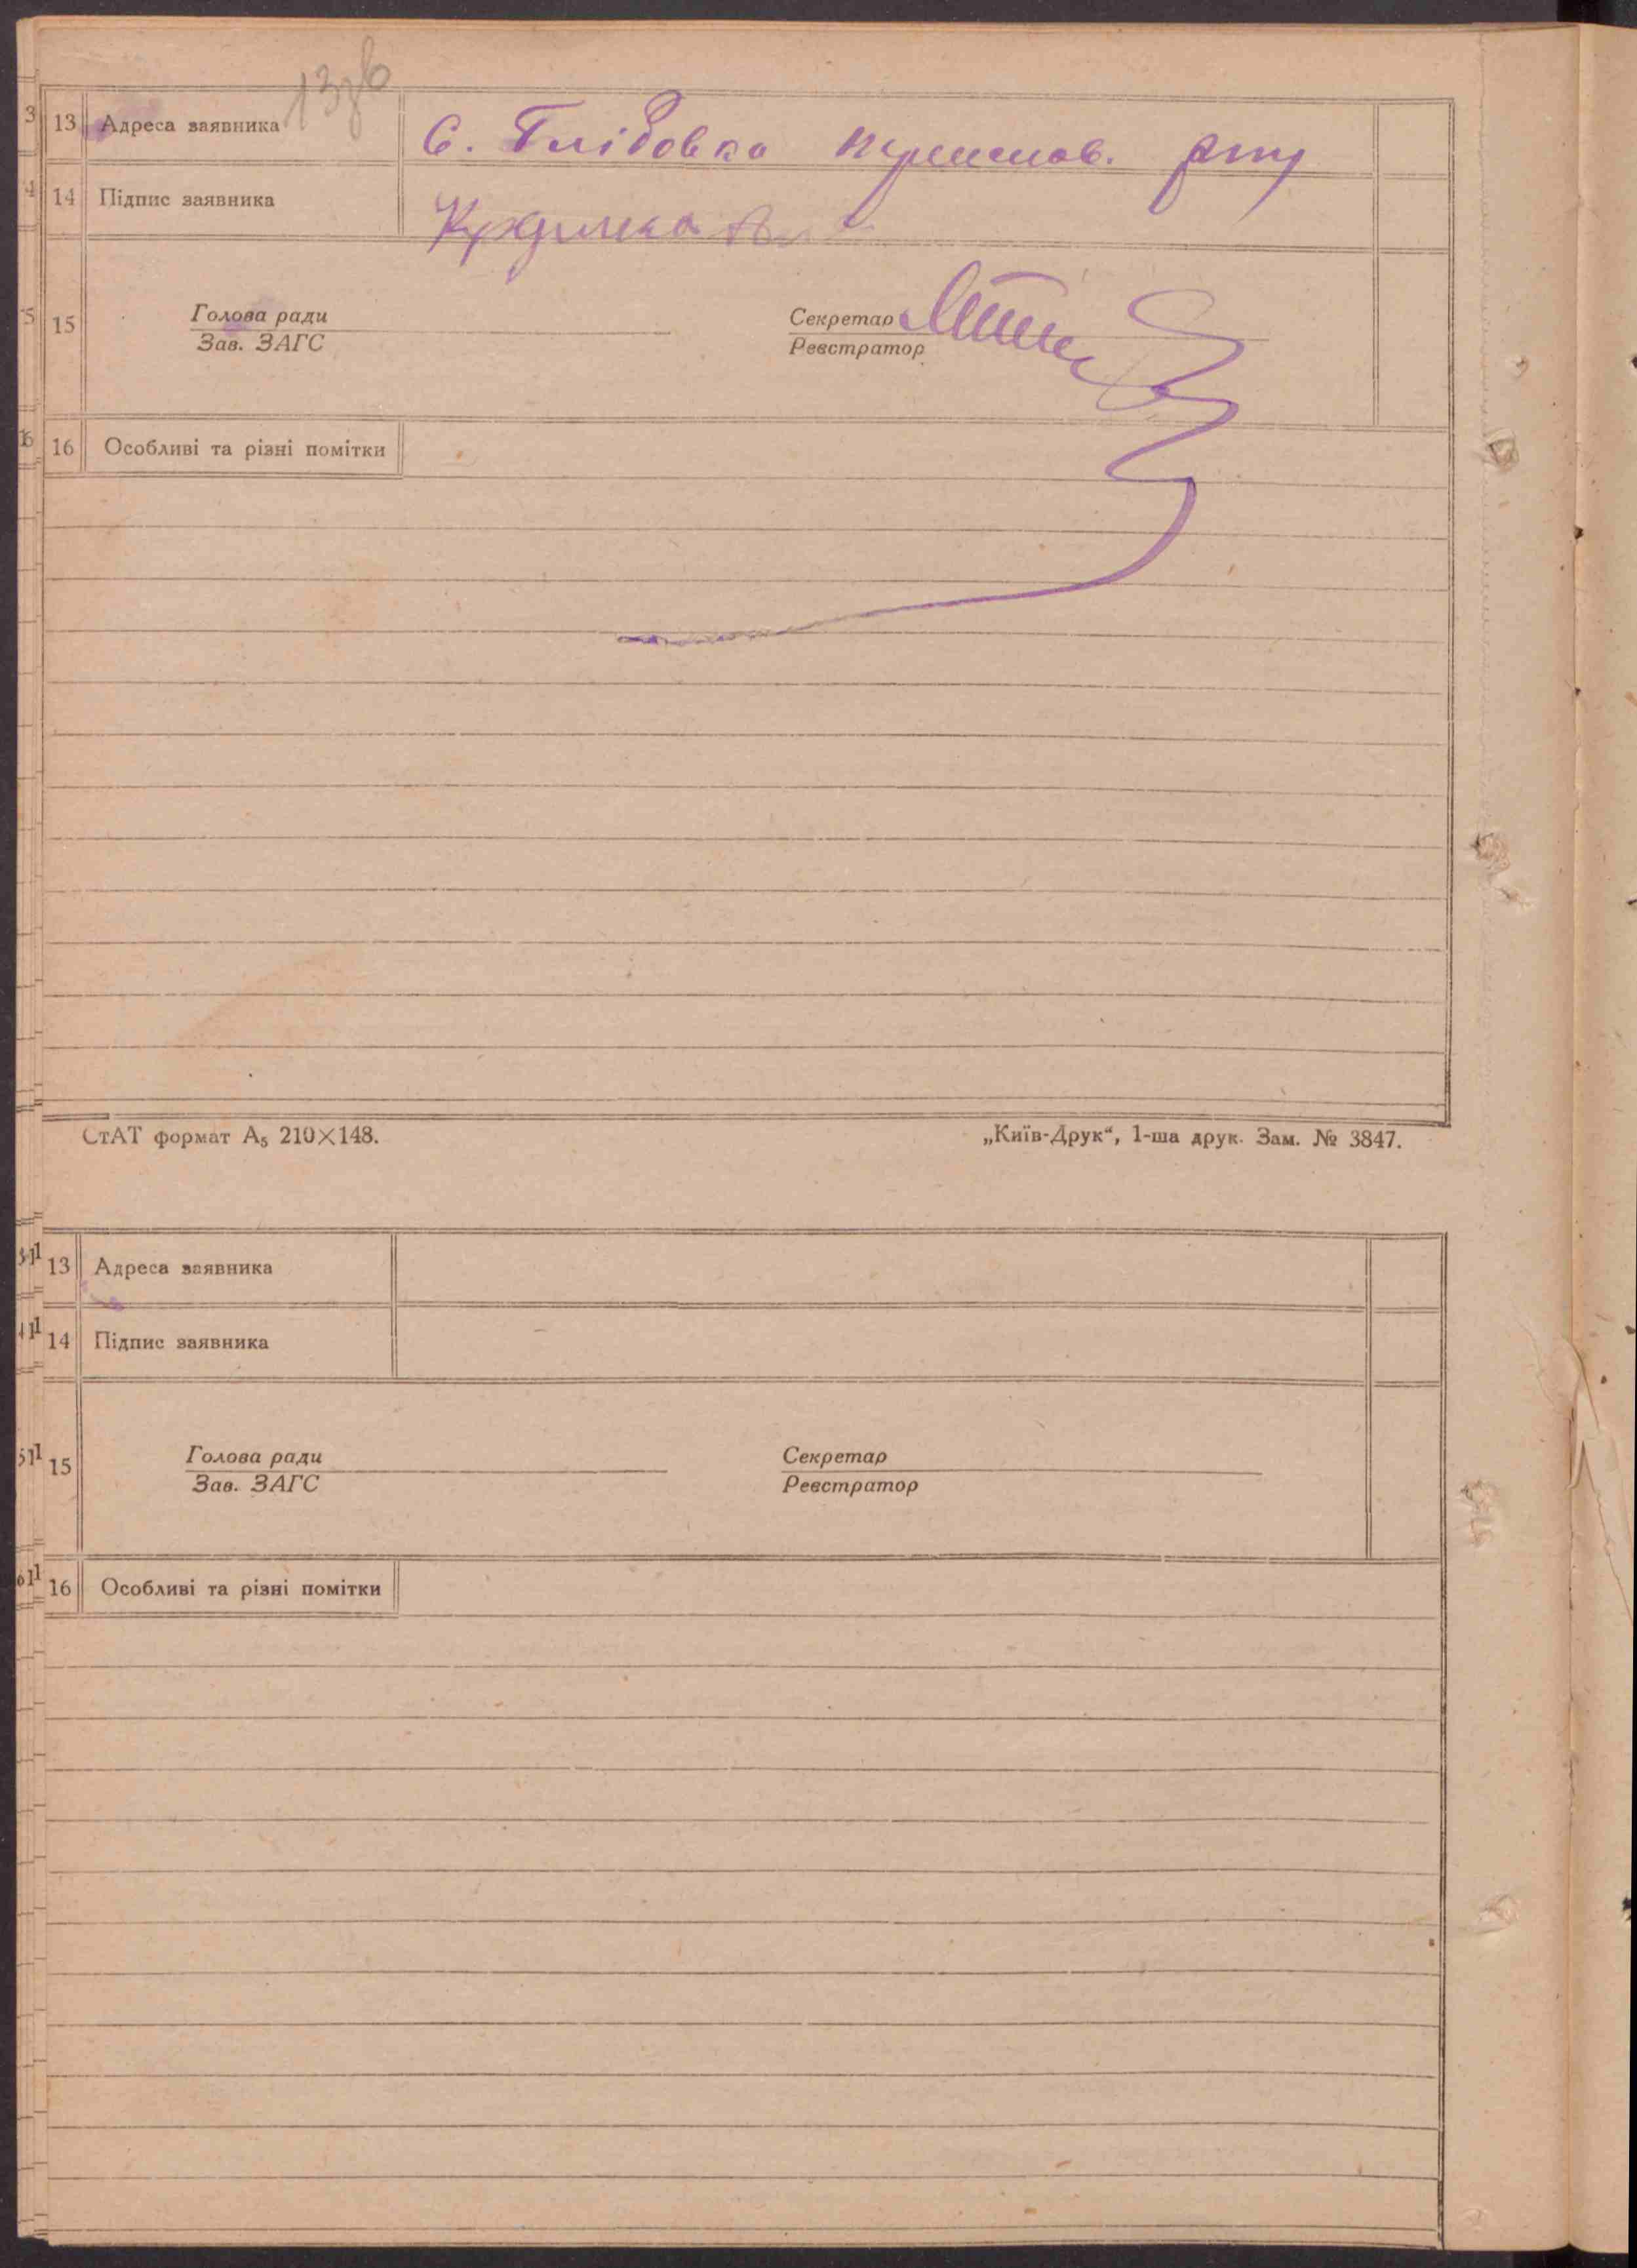 13зв
13 Адреса заявника С. Глібовка
14 Підпис заявника
15 Голова ради Секретар
Зав. ЗАГС Реєстратор
16 Особливі та різні помітки
СтАТ формат А₅ 210×148. „Київ-Друк“, 1-ша друк. Зам. № 3847.
13 Адреса заявника
14 Підпис заявника
15 Голова ради Секретар
Зав. ЗАГС Реєстратор
16 Особливі та різні помітки